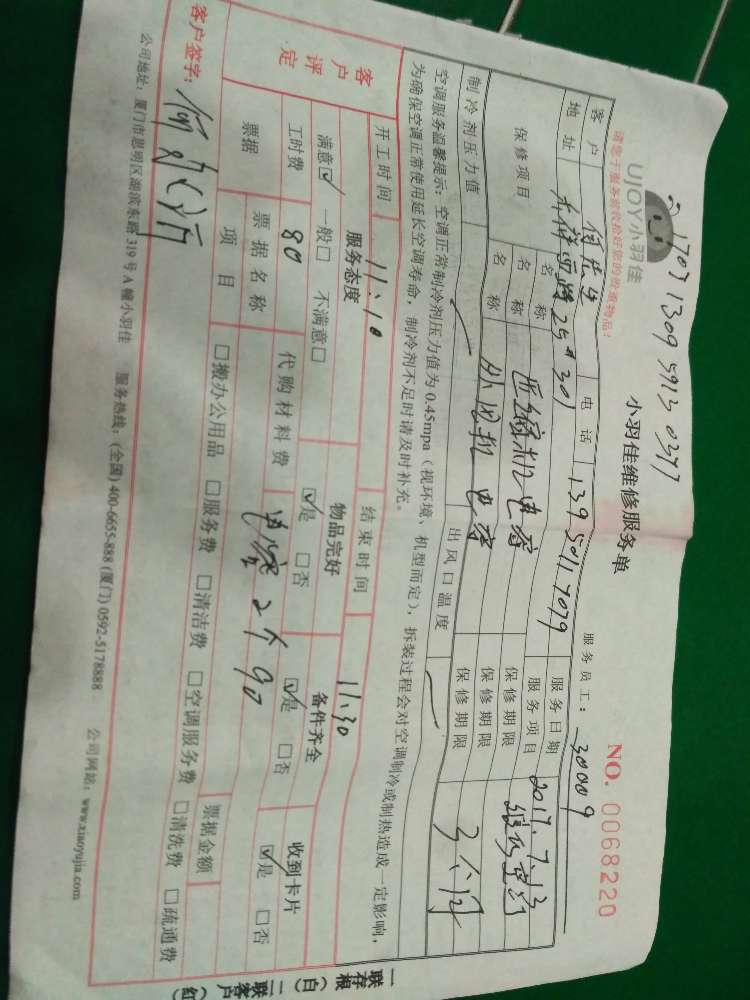 1703 1309 5913 0247
UIOY小羽佳
小羽佳维修服务单
NO. 0068220
请您于服务前收拾好您的贵重物品！
服务员工： 30009
客户 何先生 电话 13950117079 服务日期 2017.7.13
地址 25# 301 服务项目 维修空调
保修项目 名称 压缩机电容 保修期限
名称 外风机电容 保修期限 3个月
制冷剂压力值 出风口温度
空调服务温馨提示：空调正常制冷剂压力值为 0.45mpa（视环境、机型而定），拆装过程会对空调制冷或制热造成一定影响，
为确保空调正常使用延长空调寿命，制冷剂不足时请及时补充。
开工时间 11:10 结束时间 11:30
客户评定 服务态度 物品完好 备件齐全 收到卡片
满意☑ 一般□ 不满意□ ☑是 □否 ☑是 □否 ☑是 □否
工时费 80 代购材料费 电容2个90
票据 票据名称 票据金额
项目 □搬办公用品 □服务费 □清洁费 □空调服务费 □清洗费 □疏通费
客户签字：
公司地址：厦门市思明区湖滨东路 319 号 A 幢小羽佳 服务热线：(全国) 400-6655-888 (厦门) 0592-5178888 公司网站：www.xiaoyujia.com
一联存根（白）二联客户（红）